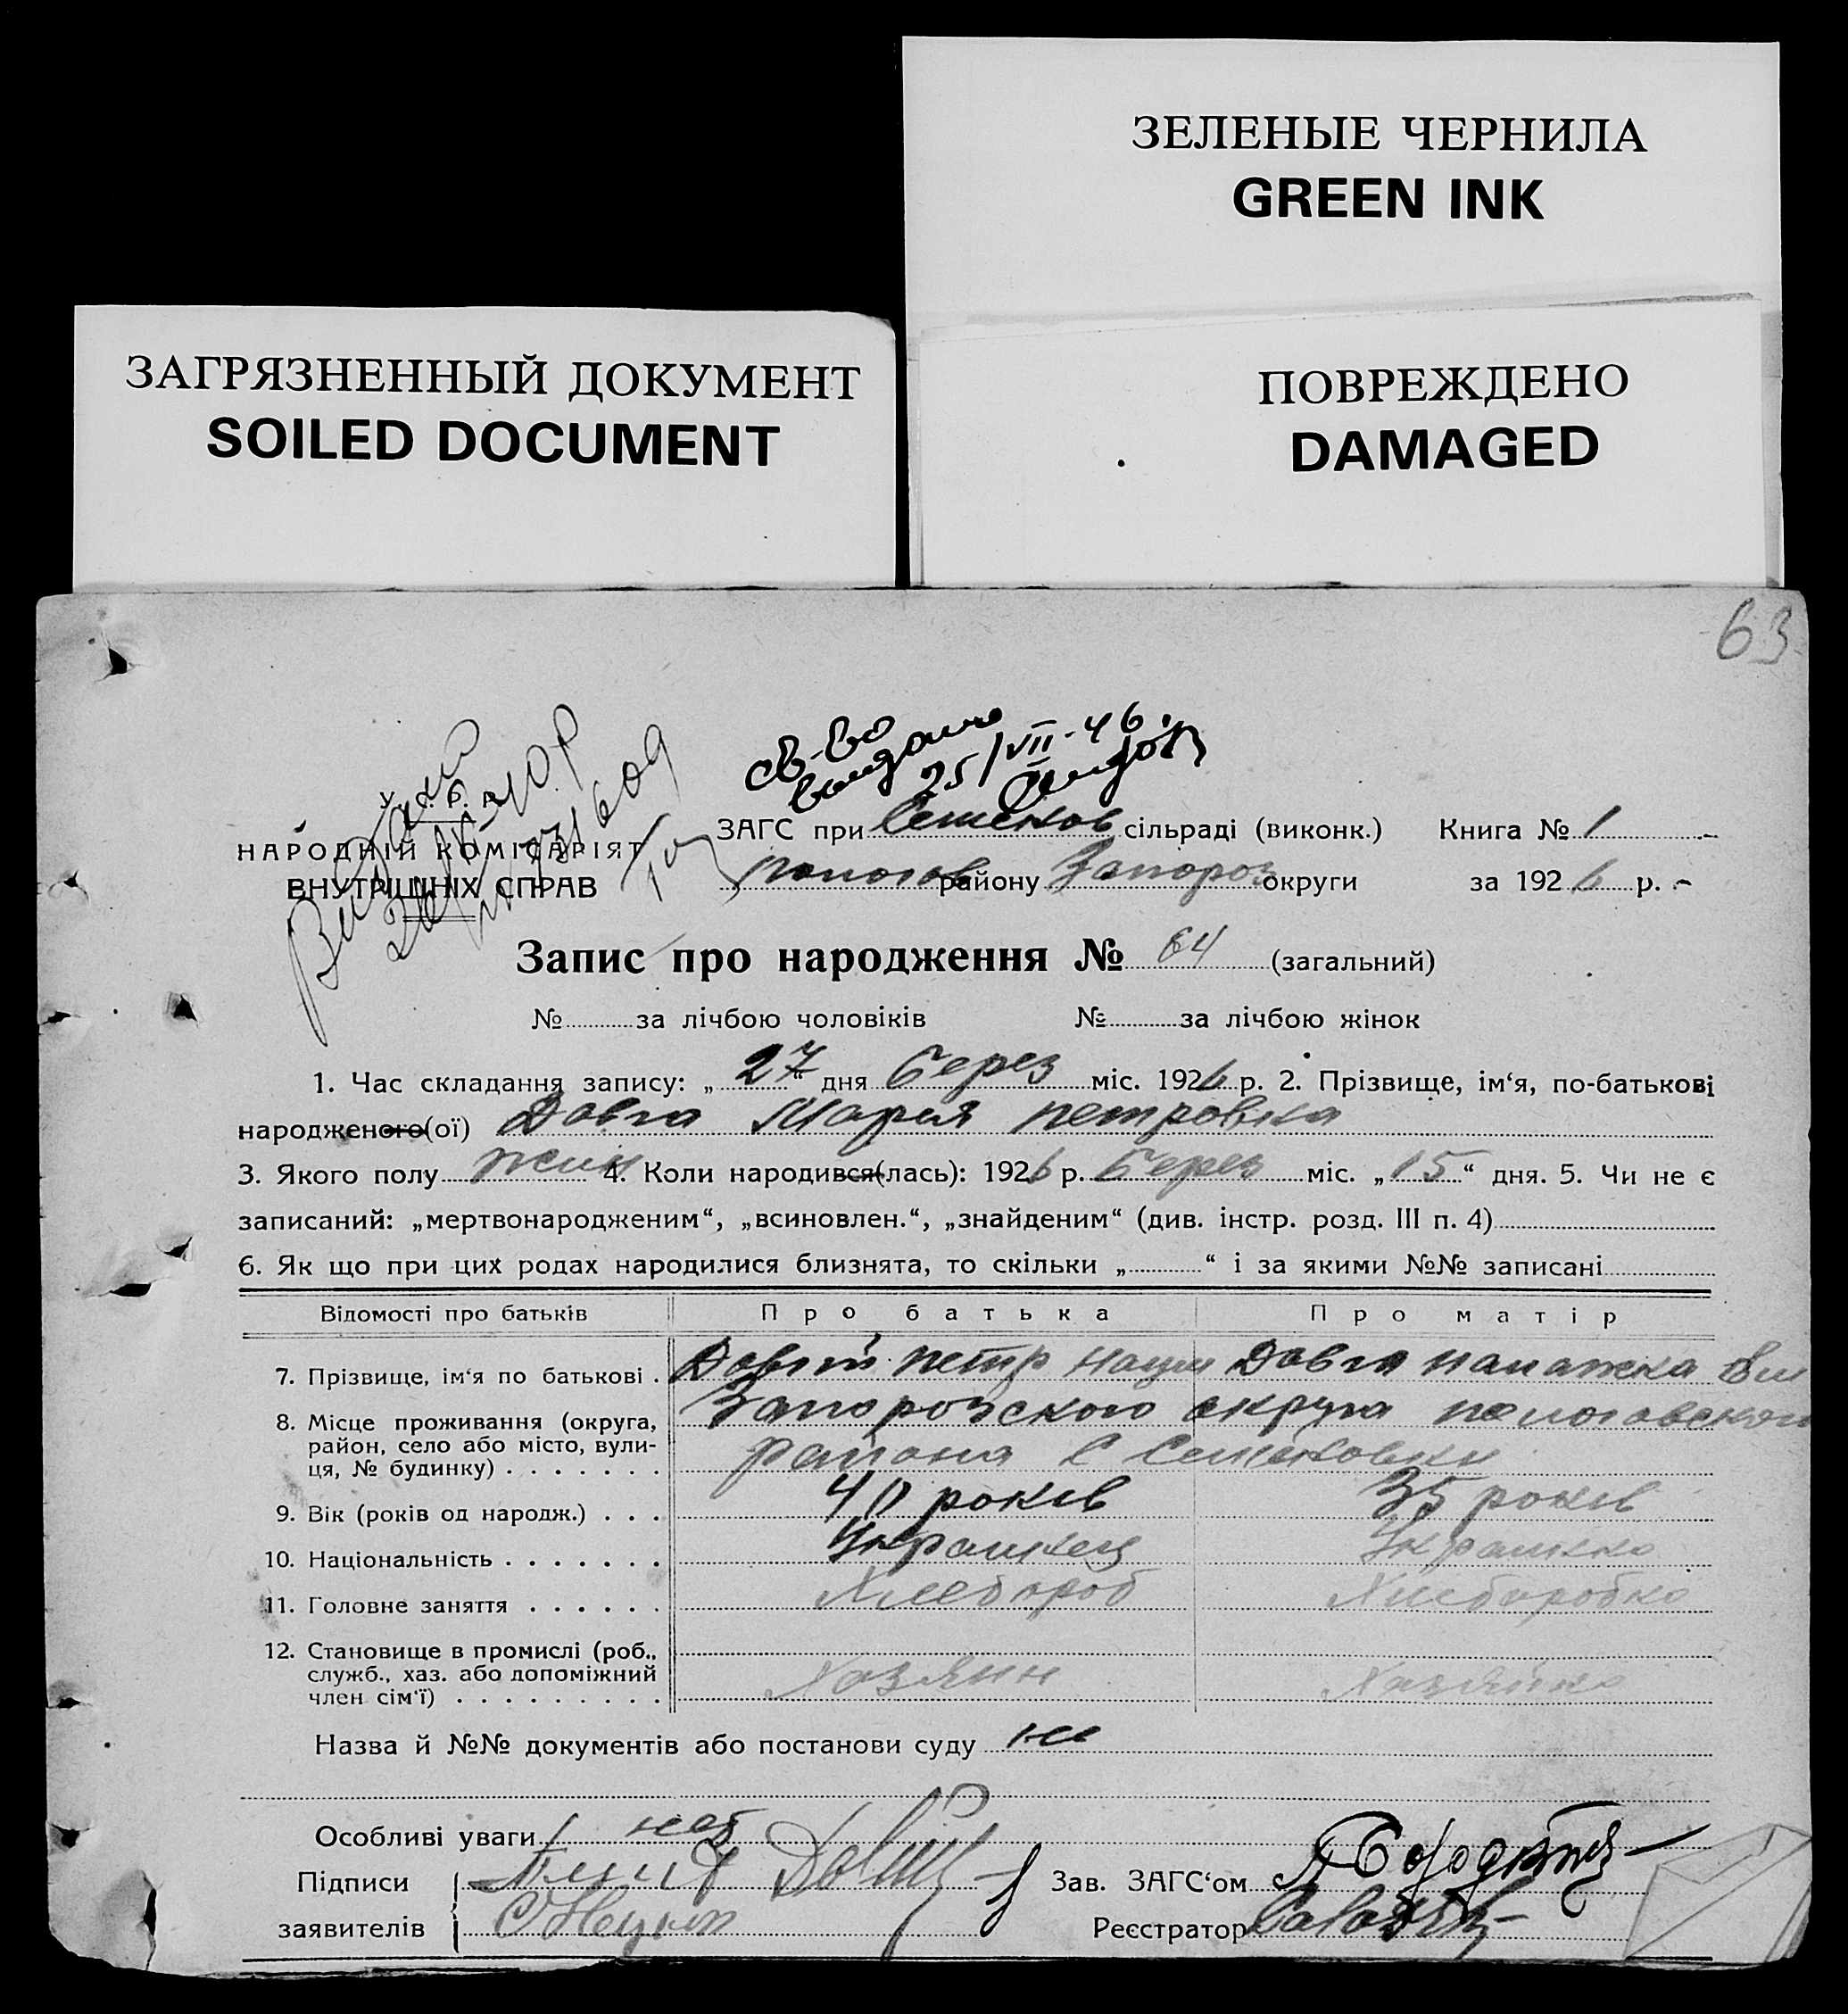 ЗЕЛЕНЫЕ ЧЕРНИЛА
GREEN INK
ЗАГРЯЗНЕННЫЙ ДОКУМЕНТ
SOILED DOCUMENT
ПОВРЕЖДЕНО
DAMAGED
63
св-во
выдано
25/VII-46
НАРОДНІЙ КОМІСАРІЯТ
ВНУТРІШНІХ СПРАВ
ЗАГС при Семенов сільраді (виконк.) Книга № 1
Пологов району Запороз округи за 1926 р.
Запис про народження № 64 (загальний)
№ за лічбою чоловіків № за лічбою жінок
1. Час складання запису: „27“ дня Берез міс. 1926 р. 2. Прізвище, ім‘я, по-батькові
народженого(ої) Довга Мария Петровна
3. Якого полу жин 4. Коли народився(лась): 1926 р. Берез міс. „15“ дня. 5. Чи не є
записаний: „мертвонародженим“, „всиновлен.“, „знайденим“ (див. інстр. розд. III п. 4)
6. Як що при цих родах народилися близнята, то скільки „ “ і за якими №№ записані
Відомості про батьків Про батька Про матір
7. Прізвище, ім‘я по батькові . Довгий Петр Наум Довга
8. Місце проживання (округа, Запорозского округа Пологовского
район, село або місто, вули- района с Семеновки
ця, № будинку) . . . . . . .
9. Вік (років од народж.) . . . 40 років 35 років
10. Національність . . . . . . . Украинец Украинка
11. Головне заняття . . . . . . Хлебороб Хлеборобка
12. Становище в промислі (роб.,
служб., хаз. або допоміжний Хазяин Хазяйка
член сім‘ї) . . . . . . . . .
Назва й №№ документів або постанови суду не
Особливі уваги нет
Підписи Довгий Зав. ЗАГС‘ом
заявителів Реєстратор